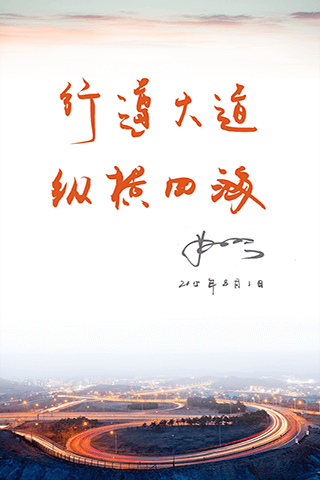 行遵大道
纵横四海
2015年8月1日